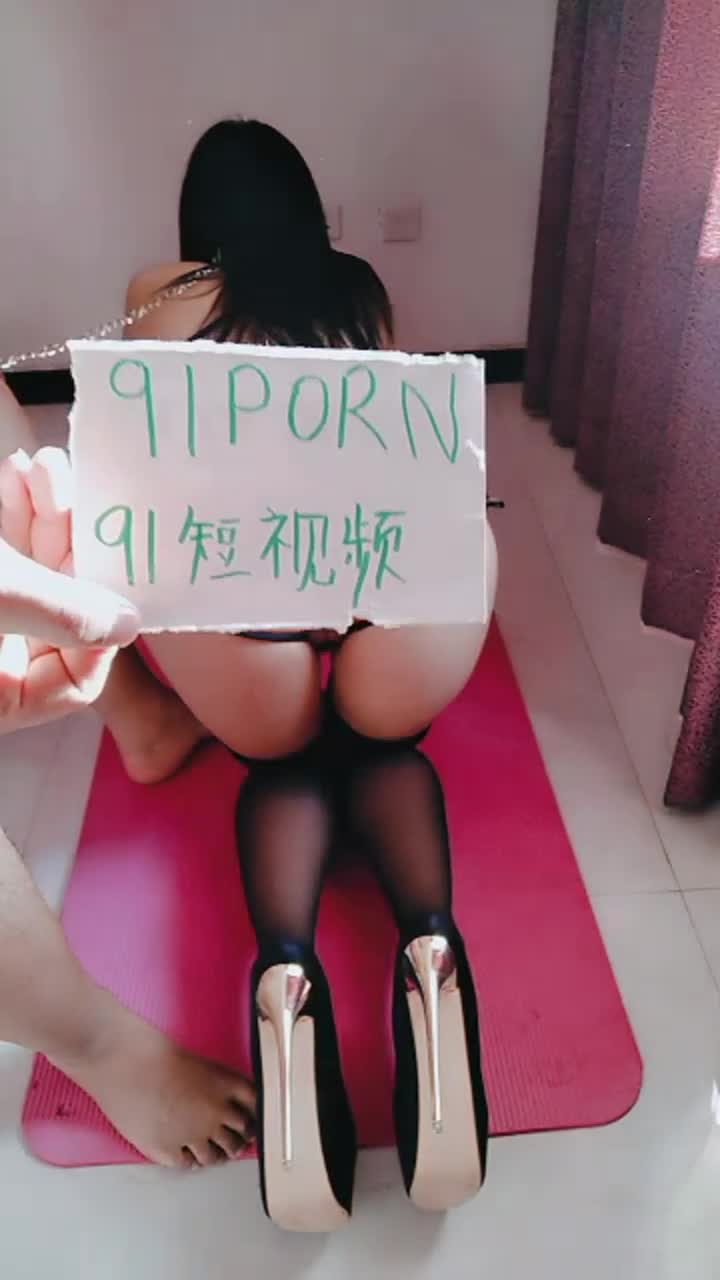 91PORN
91短视频